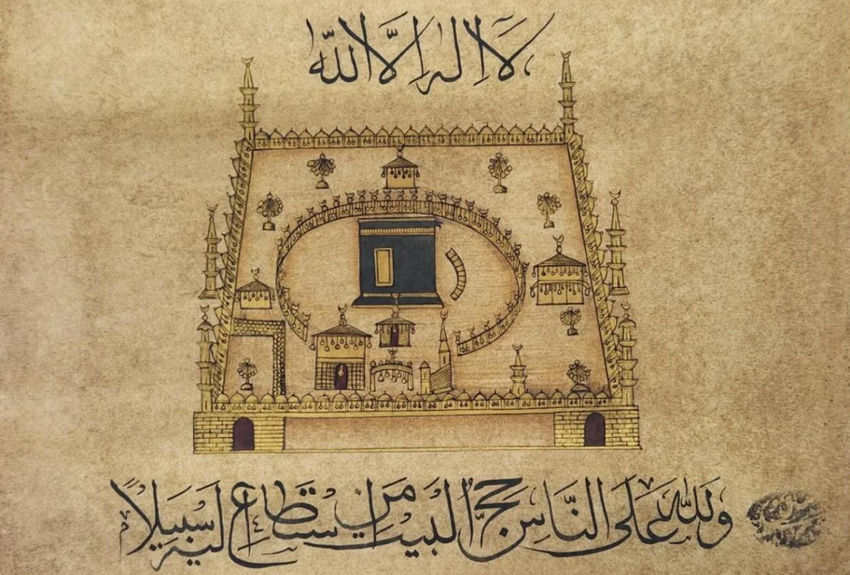 لا إله إلا الله
ولله على الناس حج البيت من استطاع إليه سبيلا